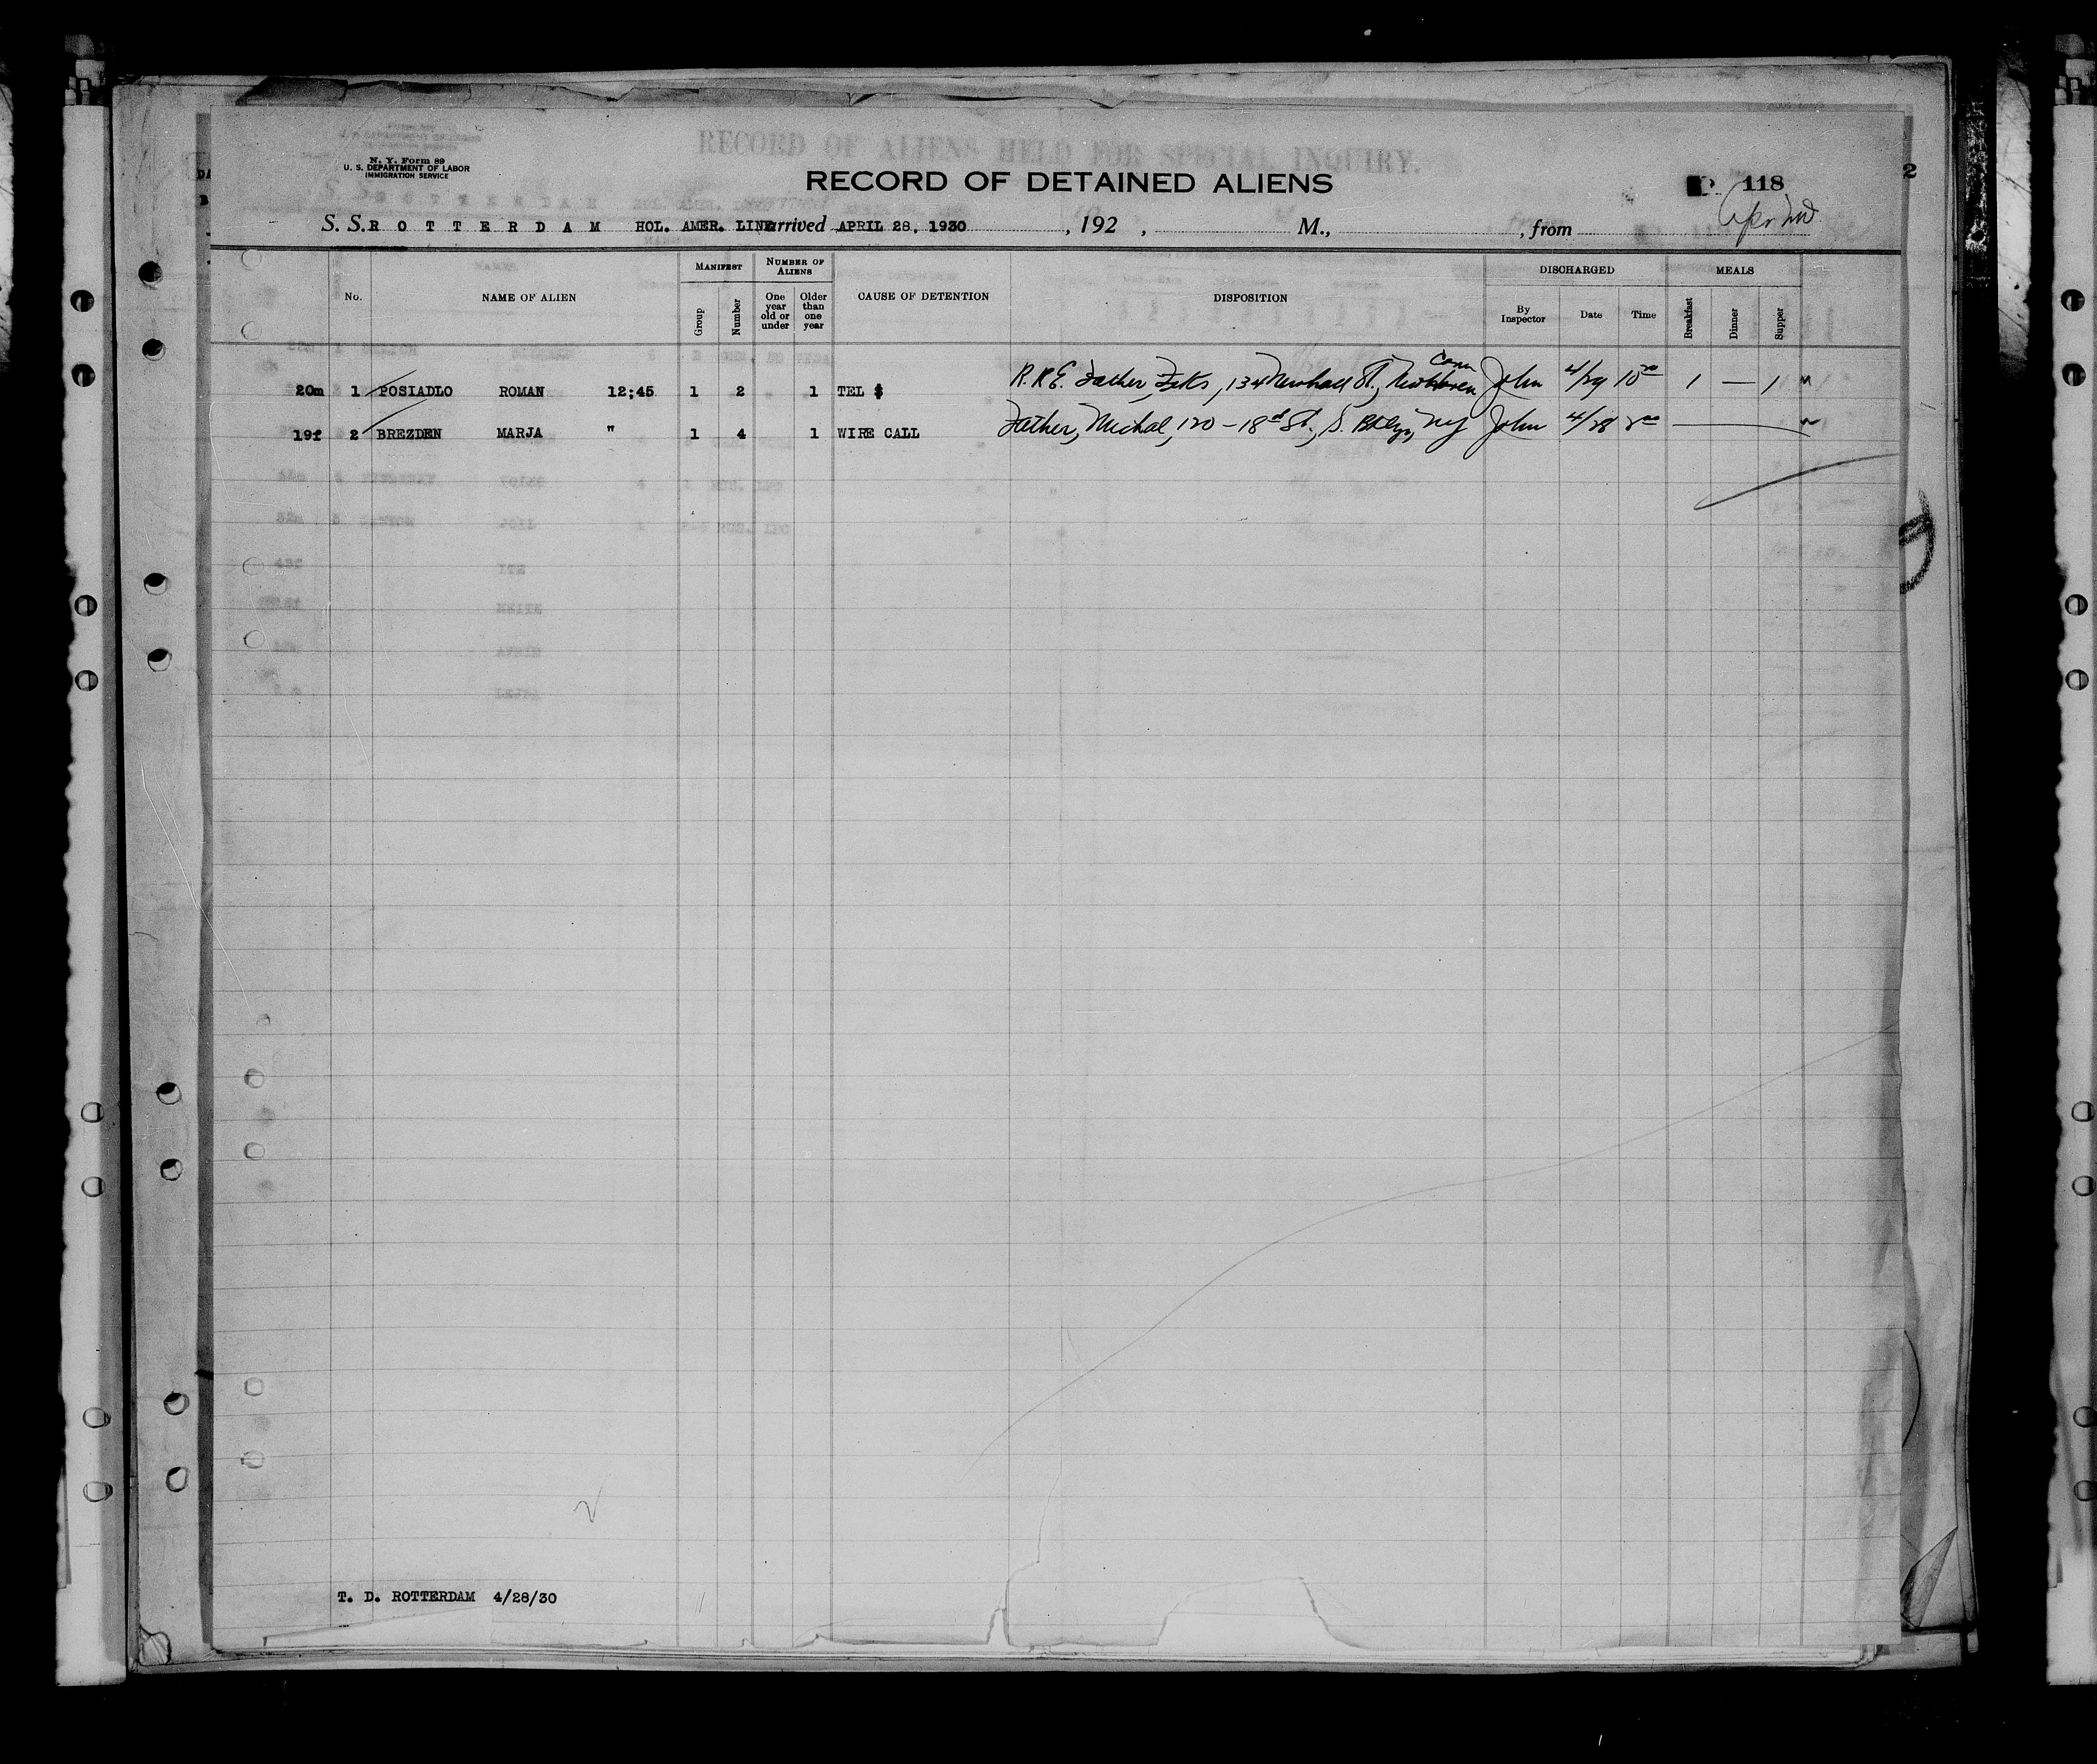 N. Y. Form 89
U. S. DEPARTMENT OF LABOR
IMMIGRATION SERVICE
RECORD OF ALIENS HELD FOR SPECIAL INQUIRY.
RECORD OF DETAINED ALIENS
118
2
S. S. ROTTERDAM HOL. AMER. LINE arrived APRIL 28, 1930 , 192 , M., , from
No. NAME OF ALIEN MANIFEST NUMBER OF ALIENS CAUSE OF DETENTION DISPOSITION DISCHARGED MEALS
Group Number One year old or under Older than one year By Inspector Date Time Breakfast Dinner Supper
20m 1 POSIADLO ROMAN 12;45 1 2 1 TEL $ R.R.E. Father, 134 Newhall St., New Haven, Conn John 4/29 10 1 — 1
19f 2 BREZDEN MARJA " 1 4 1 WIRE CALL Father, Michal, 120 - 18th St., S. Bklyn, NY John 4/28
T. D. ROTTERDAM 4/28/30